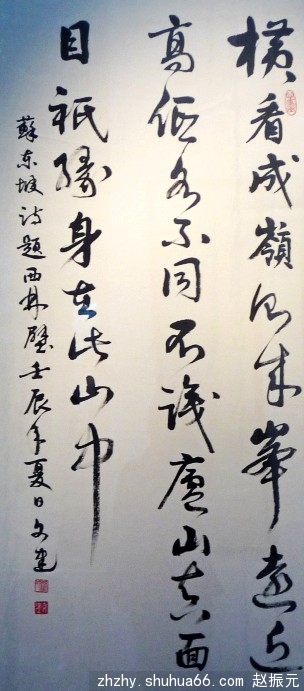 横看成嶺側成峯遠近
高低各不同不識廬山真面
目祇緣身在此山中
蘇東坡詩題西林壁壬辰年夏日文建
zhzhy.shuhua66.com 赵振元